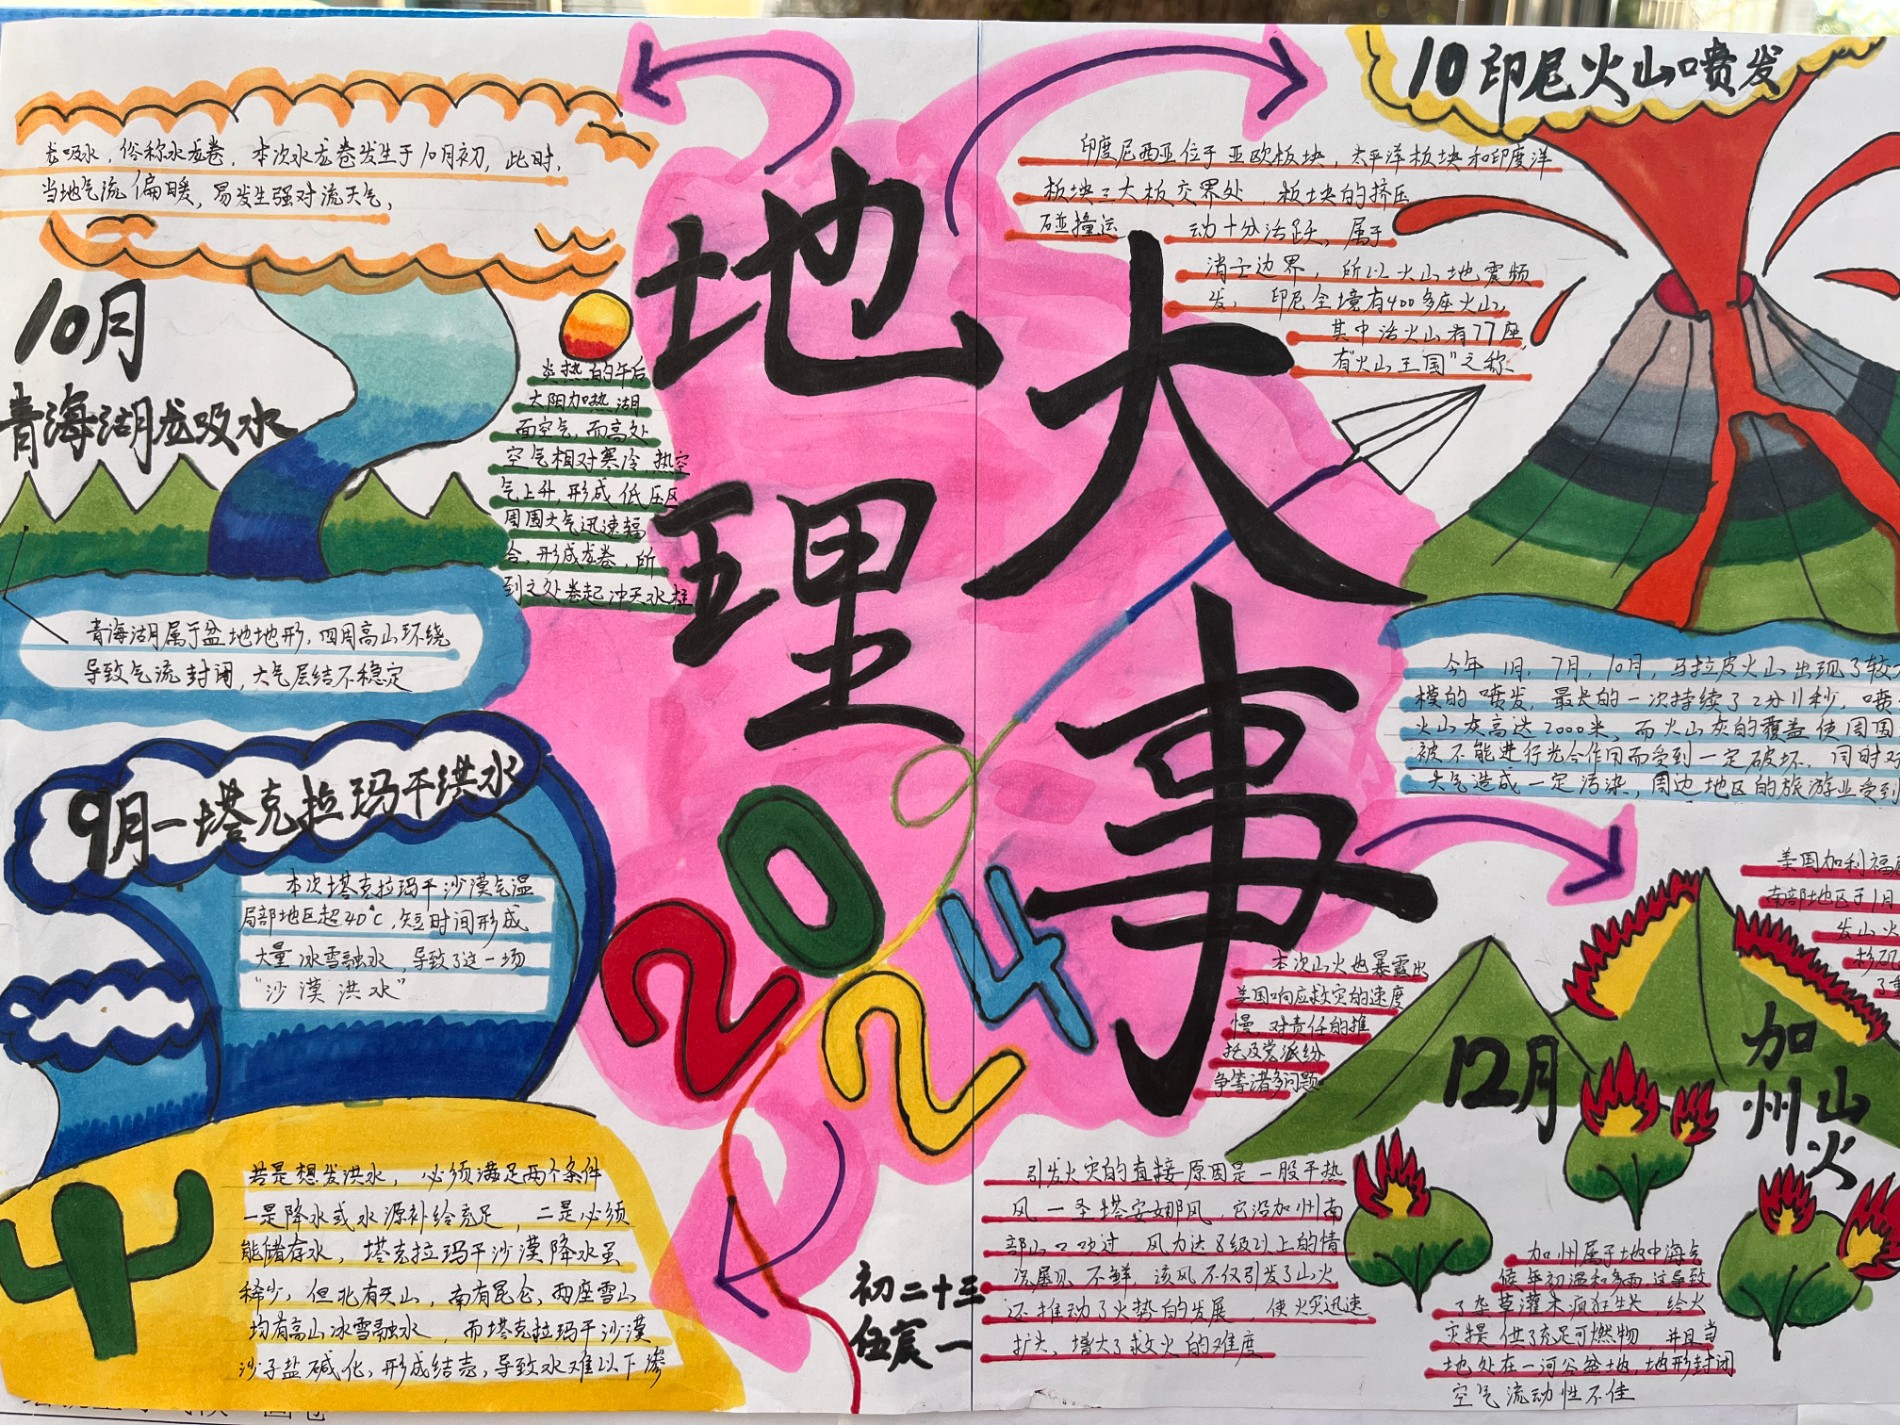 地理
大事
2024
龙吸水，俗称水龙卷，本次水龙卷发生于10月初，此时，
当地气流偏暖，易发生强对流天气，
10月
青海湖龙吸水
炎热的午后
太阳加热湖
面空气，而高处
空气相对寒冷，热空
气上升，形成低压区
周围大气迅速辐
合，形成龙卷，所
到之处卷起冲天水柱
青海湖属于盆地地形，四周高山环绕
导致气流封闭，大气层结不稳定
9月一塔克拉玛干洪水
本次塔克拉玛干沙漠气温
局部地区超40℃，短时间形成
大量冰雪融水，导致了这一场
“沙漠洪水”
若是想发洪水，必须满足两个条件
一是降水或水源补给充足，二是必须
能储存水，塔克拉玛干沙漠降水虽
稀少，但北有天山，南有昆仑，两座雪山
均有高山冰雪融水，而塔克拉玛干沙漠
沙子盐碱化，形成结壳，导致水难以下渗
10印尼火山喷发
印度尼西亚位于亚欧板块，太平洋板块和印度洋
板块三大板交界处，板块的挤压
碰撞运动十分活跃，属于
消亡边界，所以火山地震频
发，印尼全境有400多座火山，
其中活火山有77座，
有“火山王国”之称
今年1月，7月，10月，马拉皮火山出现了较
模的喷发，最长的一次持续了2分11秒，喷
火山灰高达2000米，而火山灰的覆盖使周围
被不能进行光合作用而受到一定破坏，同时对
大气造成一定污染，周边地区的旅游业受到
美国加利福
南部地区于1月
发山火
杉矶
了
12月
加州山火
本次山火也暴露出
美国响应救灾的速度
慢，对责任的推
托及党派纷
争等诸多问题
引发火灾的直接原因是一股干热
风一圣塔安娜风，它沿加州南
部山口吹过，风力达8级以上的情
况屡见不鲜，该风不仅引发了山火
还推动了火势的发展，使火灾迅速
扩大，增大了救火的难度
加州属于地中海气
候年初温和多雨，这导致
了杂草灌木疯狂生长，给火
灾提供了充足可燃物，并且当
地处在一河谷盆地，地形封闭
空气流动性不佳
初二十三
伍宸一